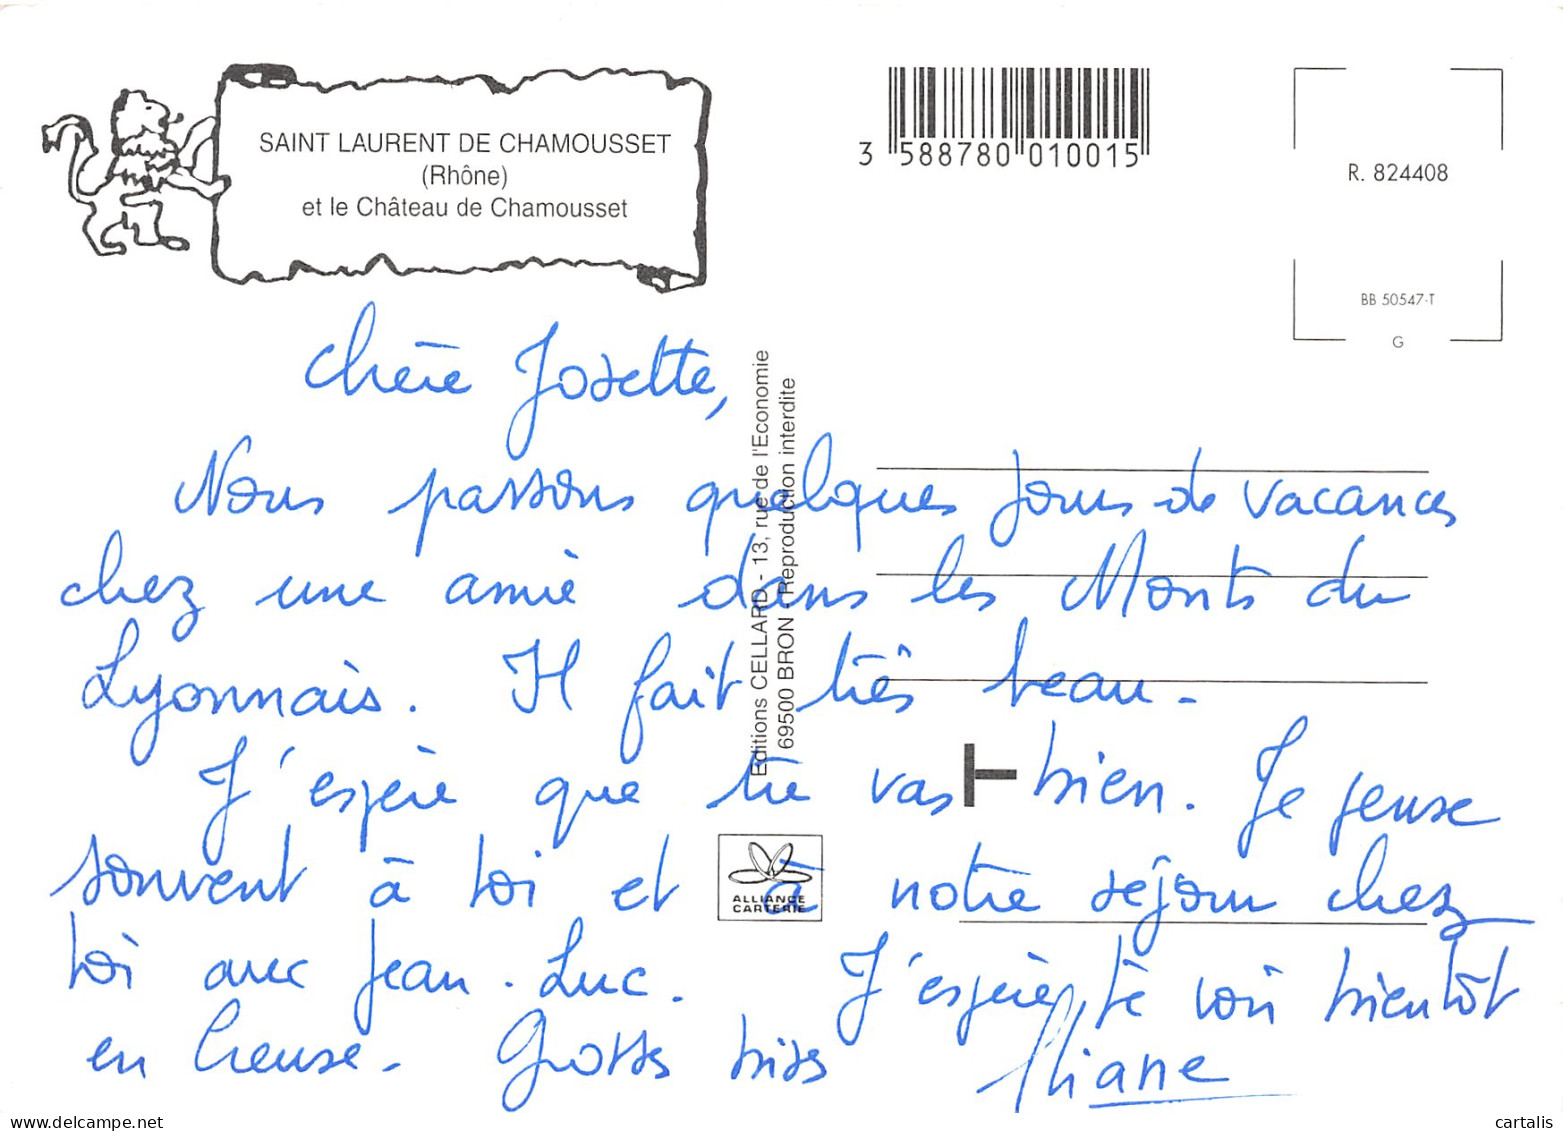 SAINT LAURENT DE CHAMOUSSET
(Rhône)
et le Château de Chamousset
3 588780 010015
R. 824408
BB 50547-T
G
Editions CELLARD - 13, rue de l'Economie
69500 BRON - Reproduction interdite
ALLIANCE
CARTERIE
Chère Josette,
Nous passons quelques jours de vacances
chez une amie dans les Monts du
Lyonnais. Il fait très beau.
J'espère que tu vas bien. Je pense
souvent à toi et à notre séjour chez
toi avec Jean-Luc. J'espère te voir bientôt
en Creuse. Grosses bises Eliane
cartalis